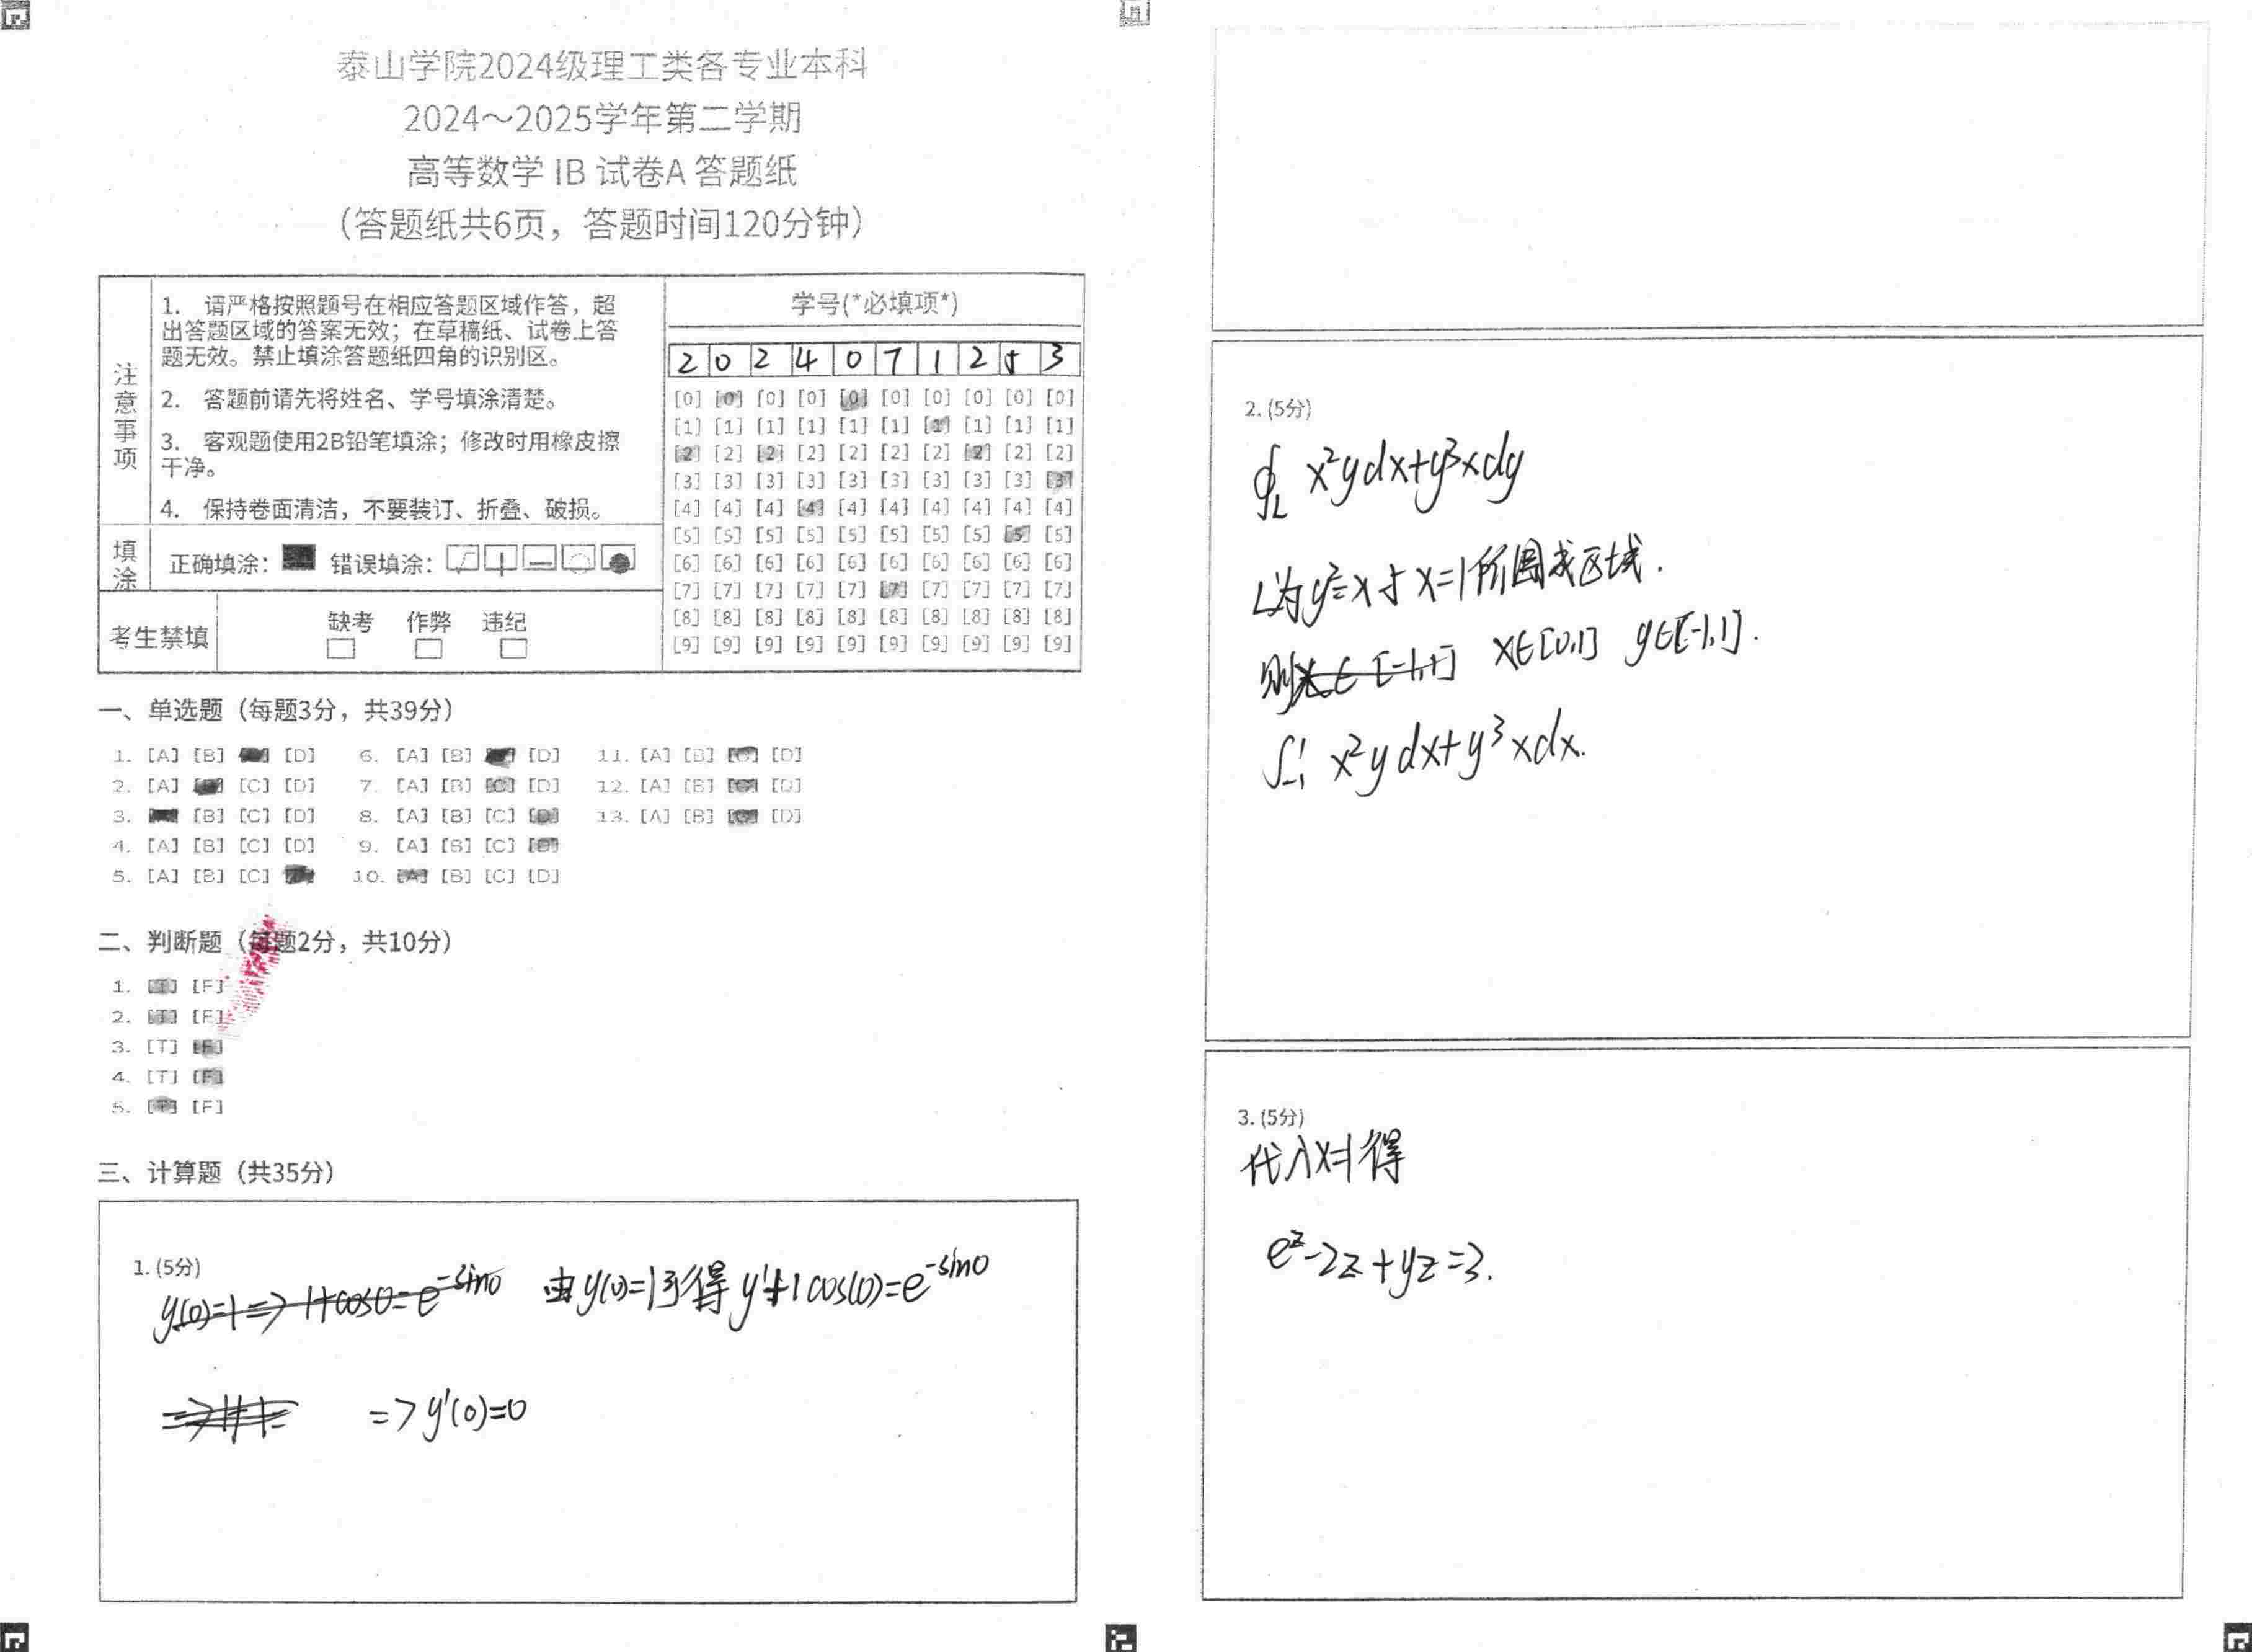 泰山学院2024级理工类各专业本科
2024～2025学年第二学期
高等数学 IB 试卷A 答题纸
（答题纸共6页，答题时间120分钟）
注意事项
1. 请严格按照题号在相应答题区域作答，超
出答题区域的答案无效；在草稿纸、试卷上答
题无效。禁止填涂答题纸四角的识别区。
2. 答题前请先将姓名、学号填涂清楚。
3. 客观题使用2B铅笔填涂；修改时用橡皮擦
干净。
4. 保持卷面清洁，不要装订、折叠、破损。
填涂
正确填涂： 错误填涂：
考生禁填
缺考 作弊 违纪
学号(*必填项*)
2 0 2 4 0 7 1 2 5 3
[0] [0] [0] [0] [0] [0] [0] [0] [0] [0]
[1] [1] [1] [1] [1] [1] [1] [1] [1] [1]
[2] [2] [2] [2] [2] [2] [2] [2] [2] [2]
[3] [3] [3] [3] [3] [3] [3] [3] [3] [3]
[4] [4] [4] [4] [4] [4] [4] [4] [4] [4]
[5] [5] [5] [5] [5] [5] [5] [5] [5] [5]
[6] [6] [6] [6] [6] [6] [6] [6] [6] [6]
[7] [7] [7] [7] [7] [7] [7] [7] [7] [7]
[8] [8] [8] [8] [8] [8] [8] [8] [8] [8]
[9] [9] [9] [9] [9] [9] [9] [9] [9] [9]
一、单选题（每题3分，共39分）
1. [A] [B] [D] 6. [A] [B] [D] 11. [A] [B] [C] [D]
2. [A] [C] [D] 7. [A] [B] [C] [D] 12. [A] [B] [C] [D]
3. [B] [C] [D] 8. [A] [B] [C] [D] 13. [A] [B] [C] [D]
4. [A] [B] [C] [D] 9. [A] [B] [C] [D]
5. [A] [B] [C] 10. [A] [B] [C] [D]
二、判断题（每题2分，共10分）
1. [T] [F]
2. [T] [F]
3. [T] [F]
4. [T] [F]
5. [T] [F]
三、计算题（共35分）
1. (5分)
y(0)=1=>1+cos0=e^-sin0 由y(0)=1可得 y'+1cos(0)=e^-sin0
=>y'(0)=0
2. (5分)
∮L x²ydx+y³xdy
L为y²=x与x=1所围成区域.
则x∈[-1,1] x∈[0,1] y∈[-1,1].
∫-1^1 x²ydx+y³xdx.
3. (5分)
代入x=1得
e^z-2z+yz=3.